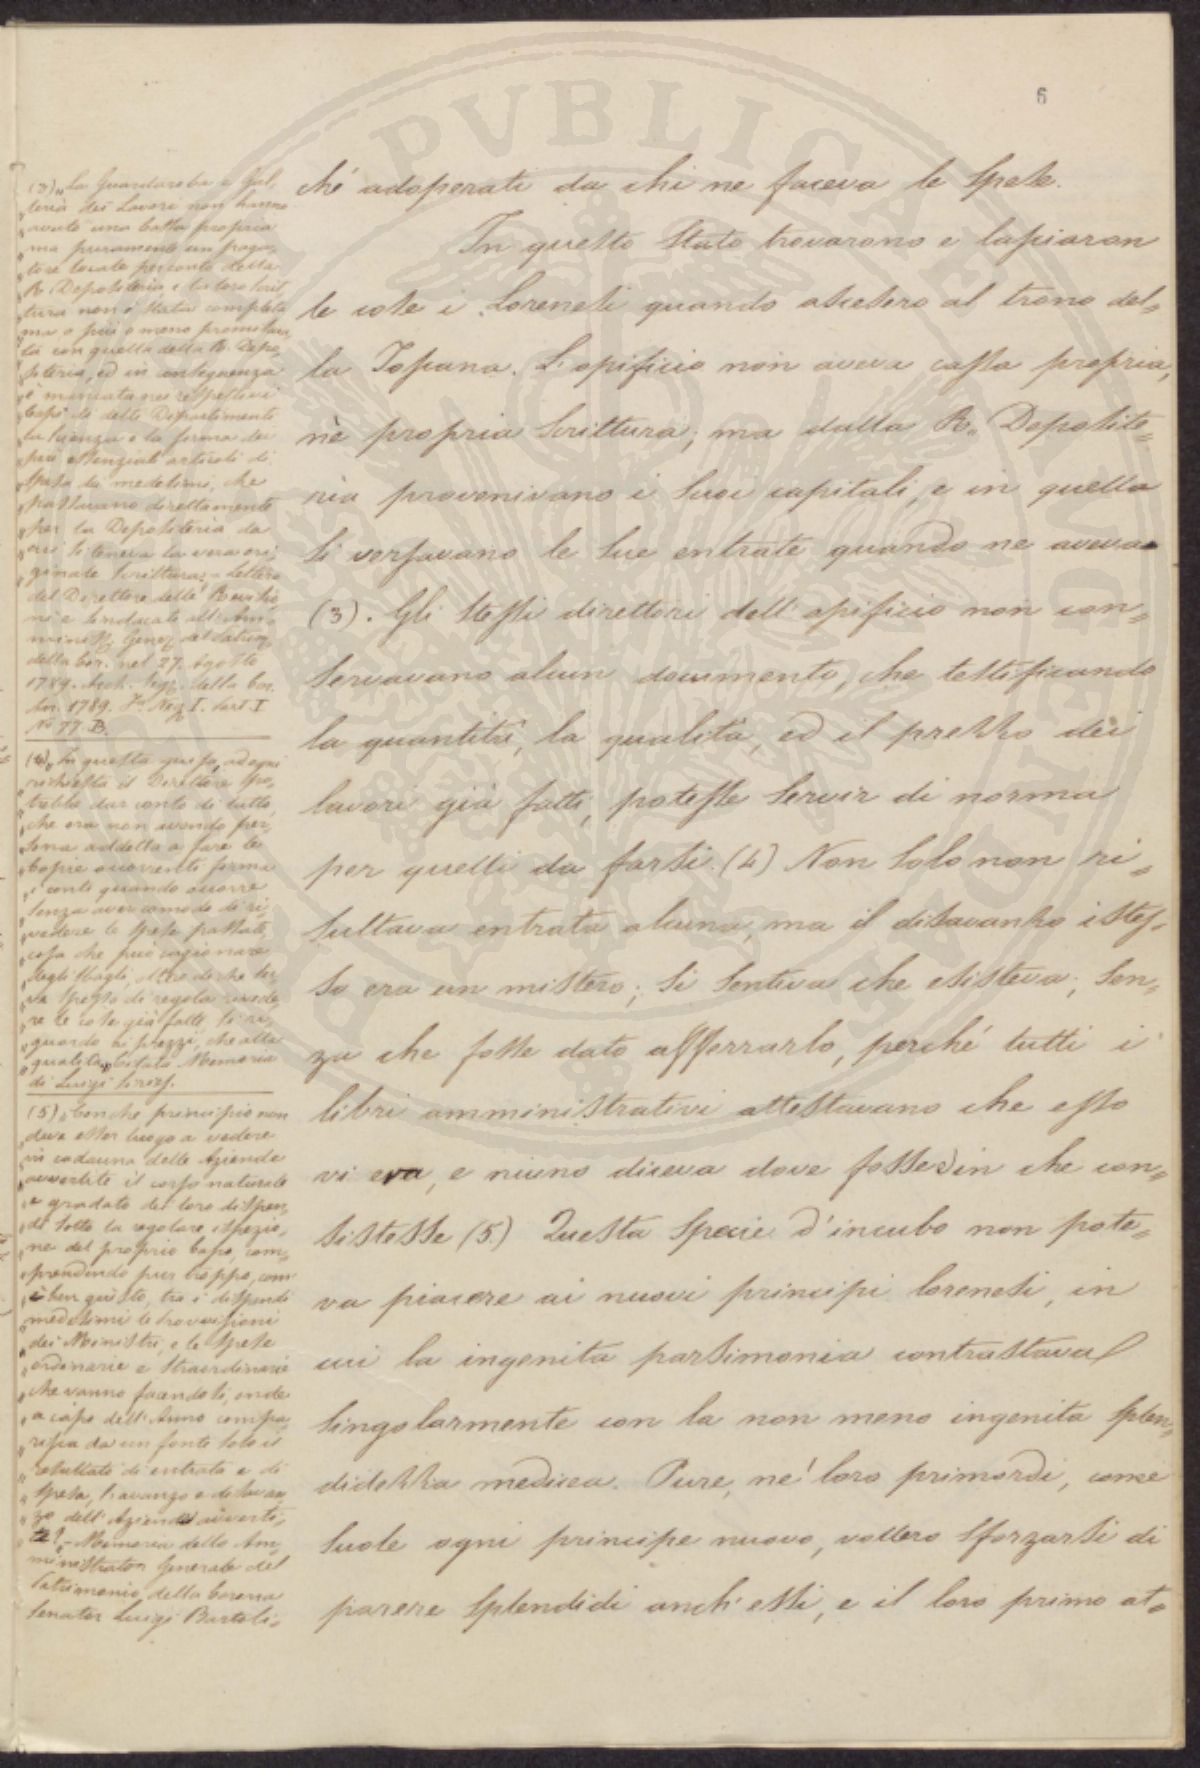 6
ché adoperati da chi ne faceva le spese.
In questo stato trovarono e lasciaron
le cose i Lorenesi quando ascesero al trono del=
la Toscana. L'opificio non aveva cassa propria,
nè propria scrittura; ma dalla R. Deposite=
ria provenivano i suoi capitali, e in quella
si versavano le sue entrate quando ne aveva
(3). Gli stessi direttori dell'opificio non con=
servavano alcun documento, che testificando
la quantità, la qualità, ed il prezzo dei
lavori già fatti, potesse servir di norma
per quelli da farsi. (4) Non solo non ri=
sultava entrata alcuna, ma il disavanzo istes=
so era un mistero; si sentiva che esisteva, sen=
za che fosse dato afferrarlo, perché tutti i
libri amministrativi attestavano che esso
vi era, e niuno diceva dove fosse o in che con=
sistesse (5) Questa specie d'incubo non pote=
va piacere ai nuovi principi lorenesi, in
cui la ingenita parsimonia contrastava
singolarmente con la non meno ingenita splen=
didezza medicea. Pure, ne' loro primordi, come
suole ogni principe nuovo, vollero sforzarsi di
parere splendidi anch'essi, e il loro primo at=
(3) „ La Guardaroba e Gal=
„ leria dei Lavori non hanno
„ avuto una cassa propria
„ ma puramente un paga=
„ tore locale per conto della
„ R. Depositeria e la loro scrit
„ tura non è stata completa
„ ma o più o meno
„ con quella della R. Depo=
„ siteria, ed in conseguenza
„ è mancata nei respettivi
„ Capi di detto Dipartimento
„ la scienza e la forma dei
„ più essenziali articoli di
„ spesa dei medesimi, che
„ passavano direttamente
„ per la Depositeria da
„ cui si teneva la vera ori=
„ ginale scrittura „ – Lettera
del Direttore delle Revisio
ni e Sindacati all'Am=
minist. Gener. del Patrim.
della Cor. nel 27. Agosto
1789. Arch. della Cor.
An. 1789. I. Part. I
No 77 B.
(4) „ In questa guisa, ad ogni
„ richiesta il Direttore po=
„ trebbe dar conto di tutto,
„ che ora non avendo per=
„ sona addetta a fare le
„ copie occorrenti forma
„ i conti quando occorre
„ senza aver comodo di ri=
„ vedere le spese passate,
„ cosa che può cagionare
„ degli sbagli, oltre di che ser=
„ ve spesso di regola il vede=
„ re le cose già fatte sì ri=
„ guardo ai prezzi, che alla
„ qualità „ Citata Memoria
di Luigi Siries.
(5) „ Con che principio non
„ deve esser luogo a vedere
„ in cadauna delle Aziende
„ avvertite il corso naturale
„ e gradato dei loro dispen=
„ di sotto la regolare ispezio=
„ ne del proprio Capo, com=
„ prendendo pur troppo, com'
„ è ben giusto, tra i dispendi
„ medesimi le provvisioni
„ dei Ministri, e le spese
„ ordinarie e straordinarie
„ che vanno facendosi, onde
„ a capo dell'Anno compa=
„ risca da un fonte solo il
„ resultato di entrata e di
„ spesa, l'avanzo e disavan
„ zo dell'Aziende avverti=
„ te? „ – Memoria dello Am=
ministrator Generale del
Patrimonio della Corona
Senator Luigi Bartoli=